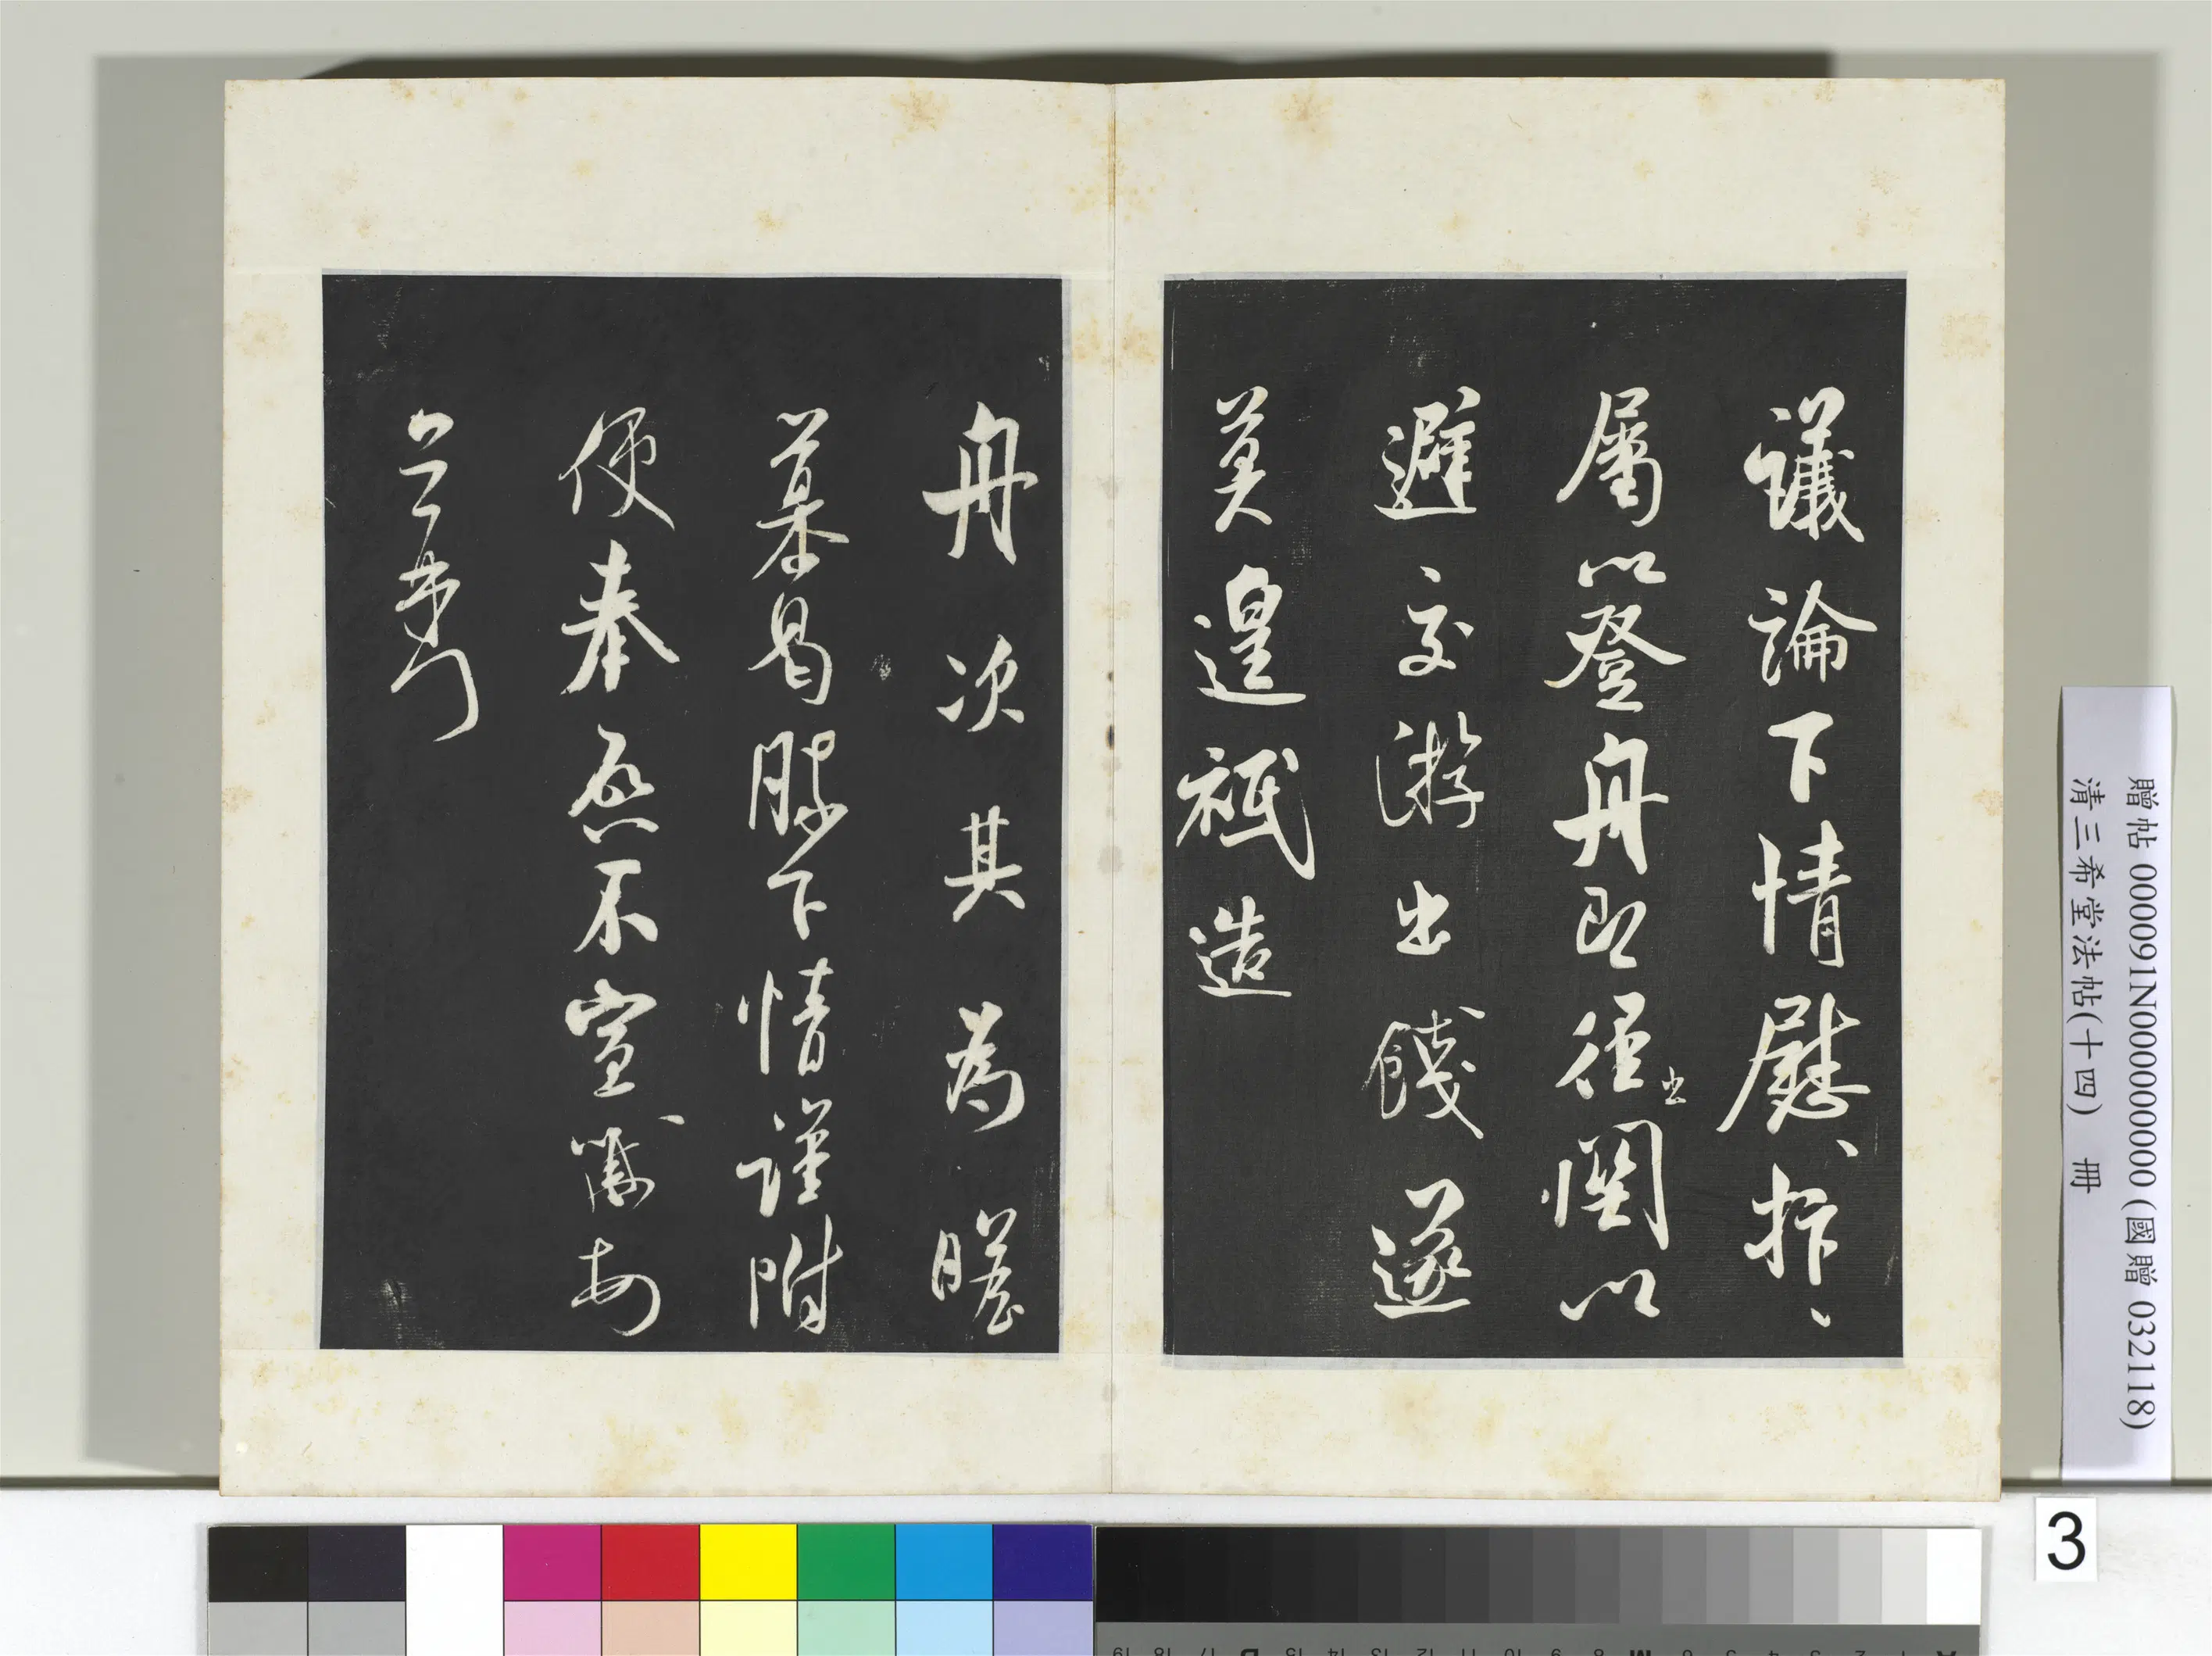 議論下情慰、抃、
屬以登舟即徑出關以
避交游出餞遂
莫遑祗造
舟次其為瞻
慕曷勝下情謹附
便奉啟不宣
贈帖 000091N000000000 (國贈 032118)
清三希堂法帖(十四) 冊
3